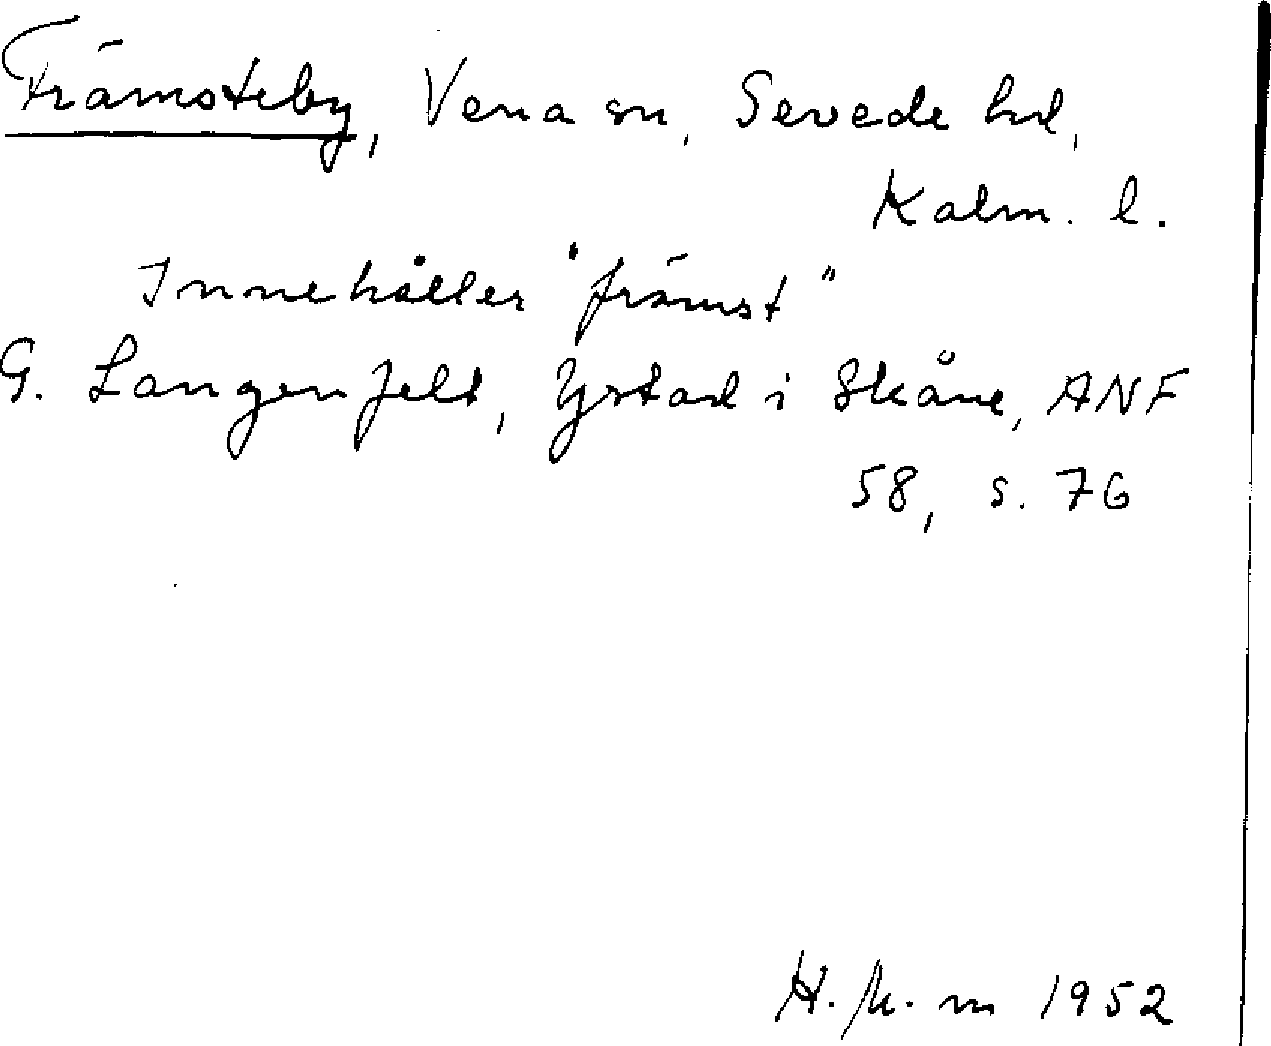 Främsteby, Vena sn, Sevede hd,
Kalm. l.
Innehåller "främst"
G. Langenfelt, Ystad i Skåne, ANF
58, s. 76
1952